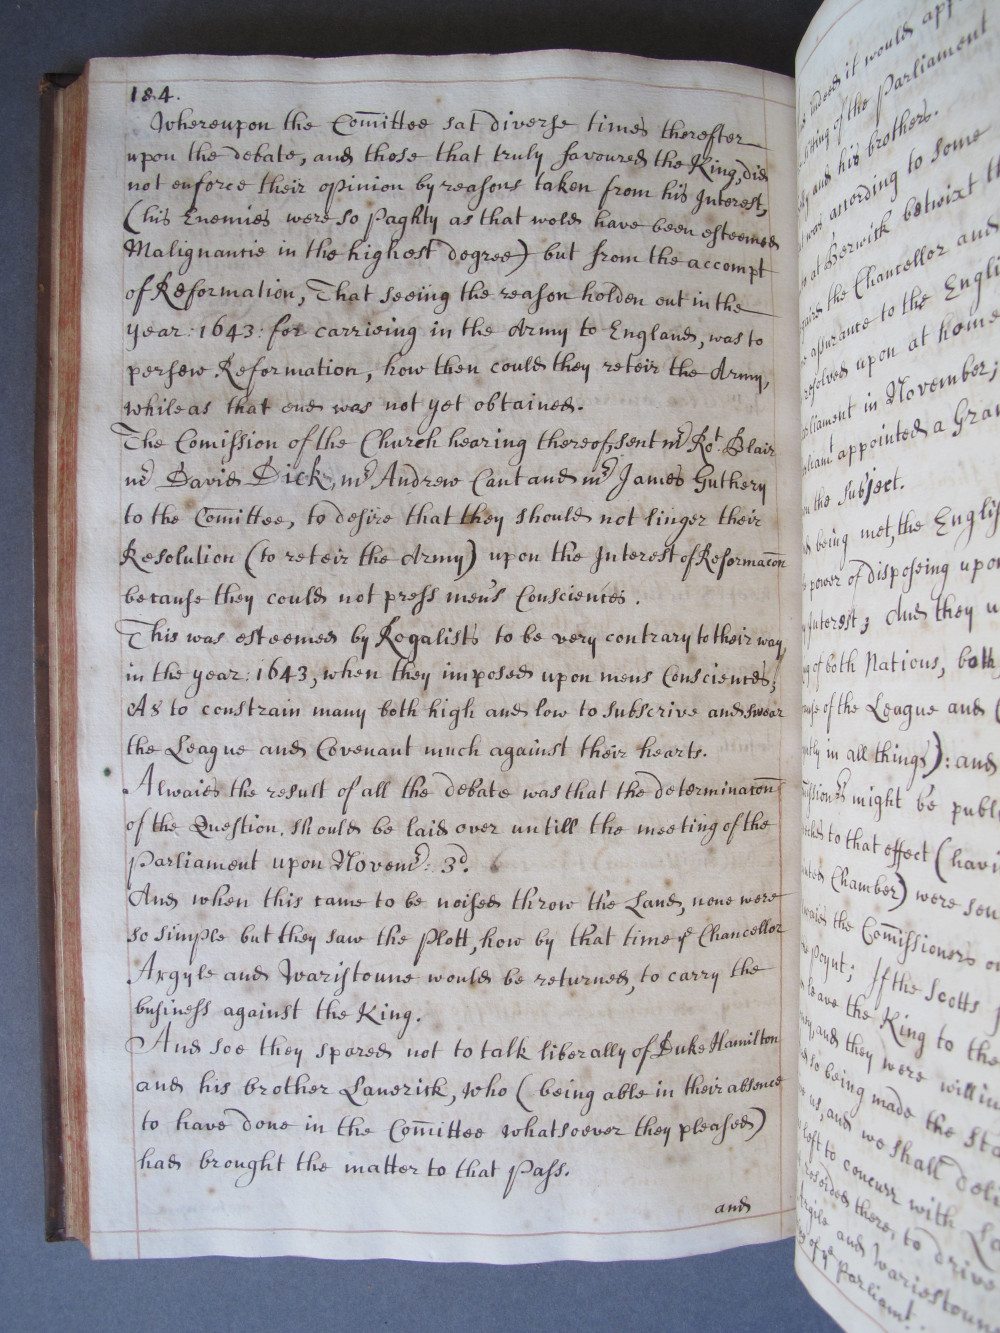 184.
Whereupon the Com̃ittee sat diverse times thereafter
upon the debate, and those that truly favoured the King, did
not enforce their opinion by reasons taken from his Interest,
(his Enemies were so paghty as that wold have been esteemed
Malignancie in the highest degree) but from the accompt
of Reformation, That seeing the reason holden out in the
year: 1643: for carrieing in the Army to England, was to
persew Reformation, how then could they reteir the Army,
while as that end was not yet obtained.
The Comission of the Church hearing thereof, sent mr Rot. Blair
mr David Dick, mr Andrew Cant and mr James Guthery
to the Com̃ittee, to desire that they should not linger their
Resolution (to reteir the Army) upon the Interest of Reformacōn
because they could not press men's Consciences.
This was esteemed by Rogalists to be very contrary to their way
in the year: 1643, when they imposed upon mens Consciences;
As to constrain many both high and low to subscrive and swear
the League and Covenant much against their hearts.
Alwaies the result of all the debate was that the determinacōn
of the Question, should be laid over untill the meeting of the
Parliament upon Novemr: 3d.
And when this came to be noised throw the Land, none were
so simple but they saw the Plott, how by that time ye Chancellor
Argyle and Waristoune would be returned, to carry the
business against the King.
And soe they spared not to talk liberally of Duke Hamilton
and his brother Lanerick, who (being able in their absence
to have done in the Com̃ittee whatsoever they pleased)
had brought the matter to that Pass.
and
indeed it would app
sitting of the Parliament
and his brothers.
was according to some
at Berwick betwixt th
the Chancellor and
assurance to the Engli
resolved upon at home
liament in November;
appointed a Gran
the Subject.
being met, the Englis
power of disposeing upon
Interest; And they u
of both Nations, both
of the League and C
in all things): and
might be publ
to that effect (havi
Chamber) were sen
the Com̃issioners o
Poynt; If the Scotts
leave the King to the
and they were willin
so being made the sta
us, and we shall deli
left to concurr with La
resided there, to drive
Argile and Wariestoune
of ye Parliamt.